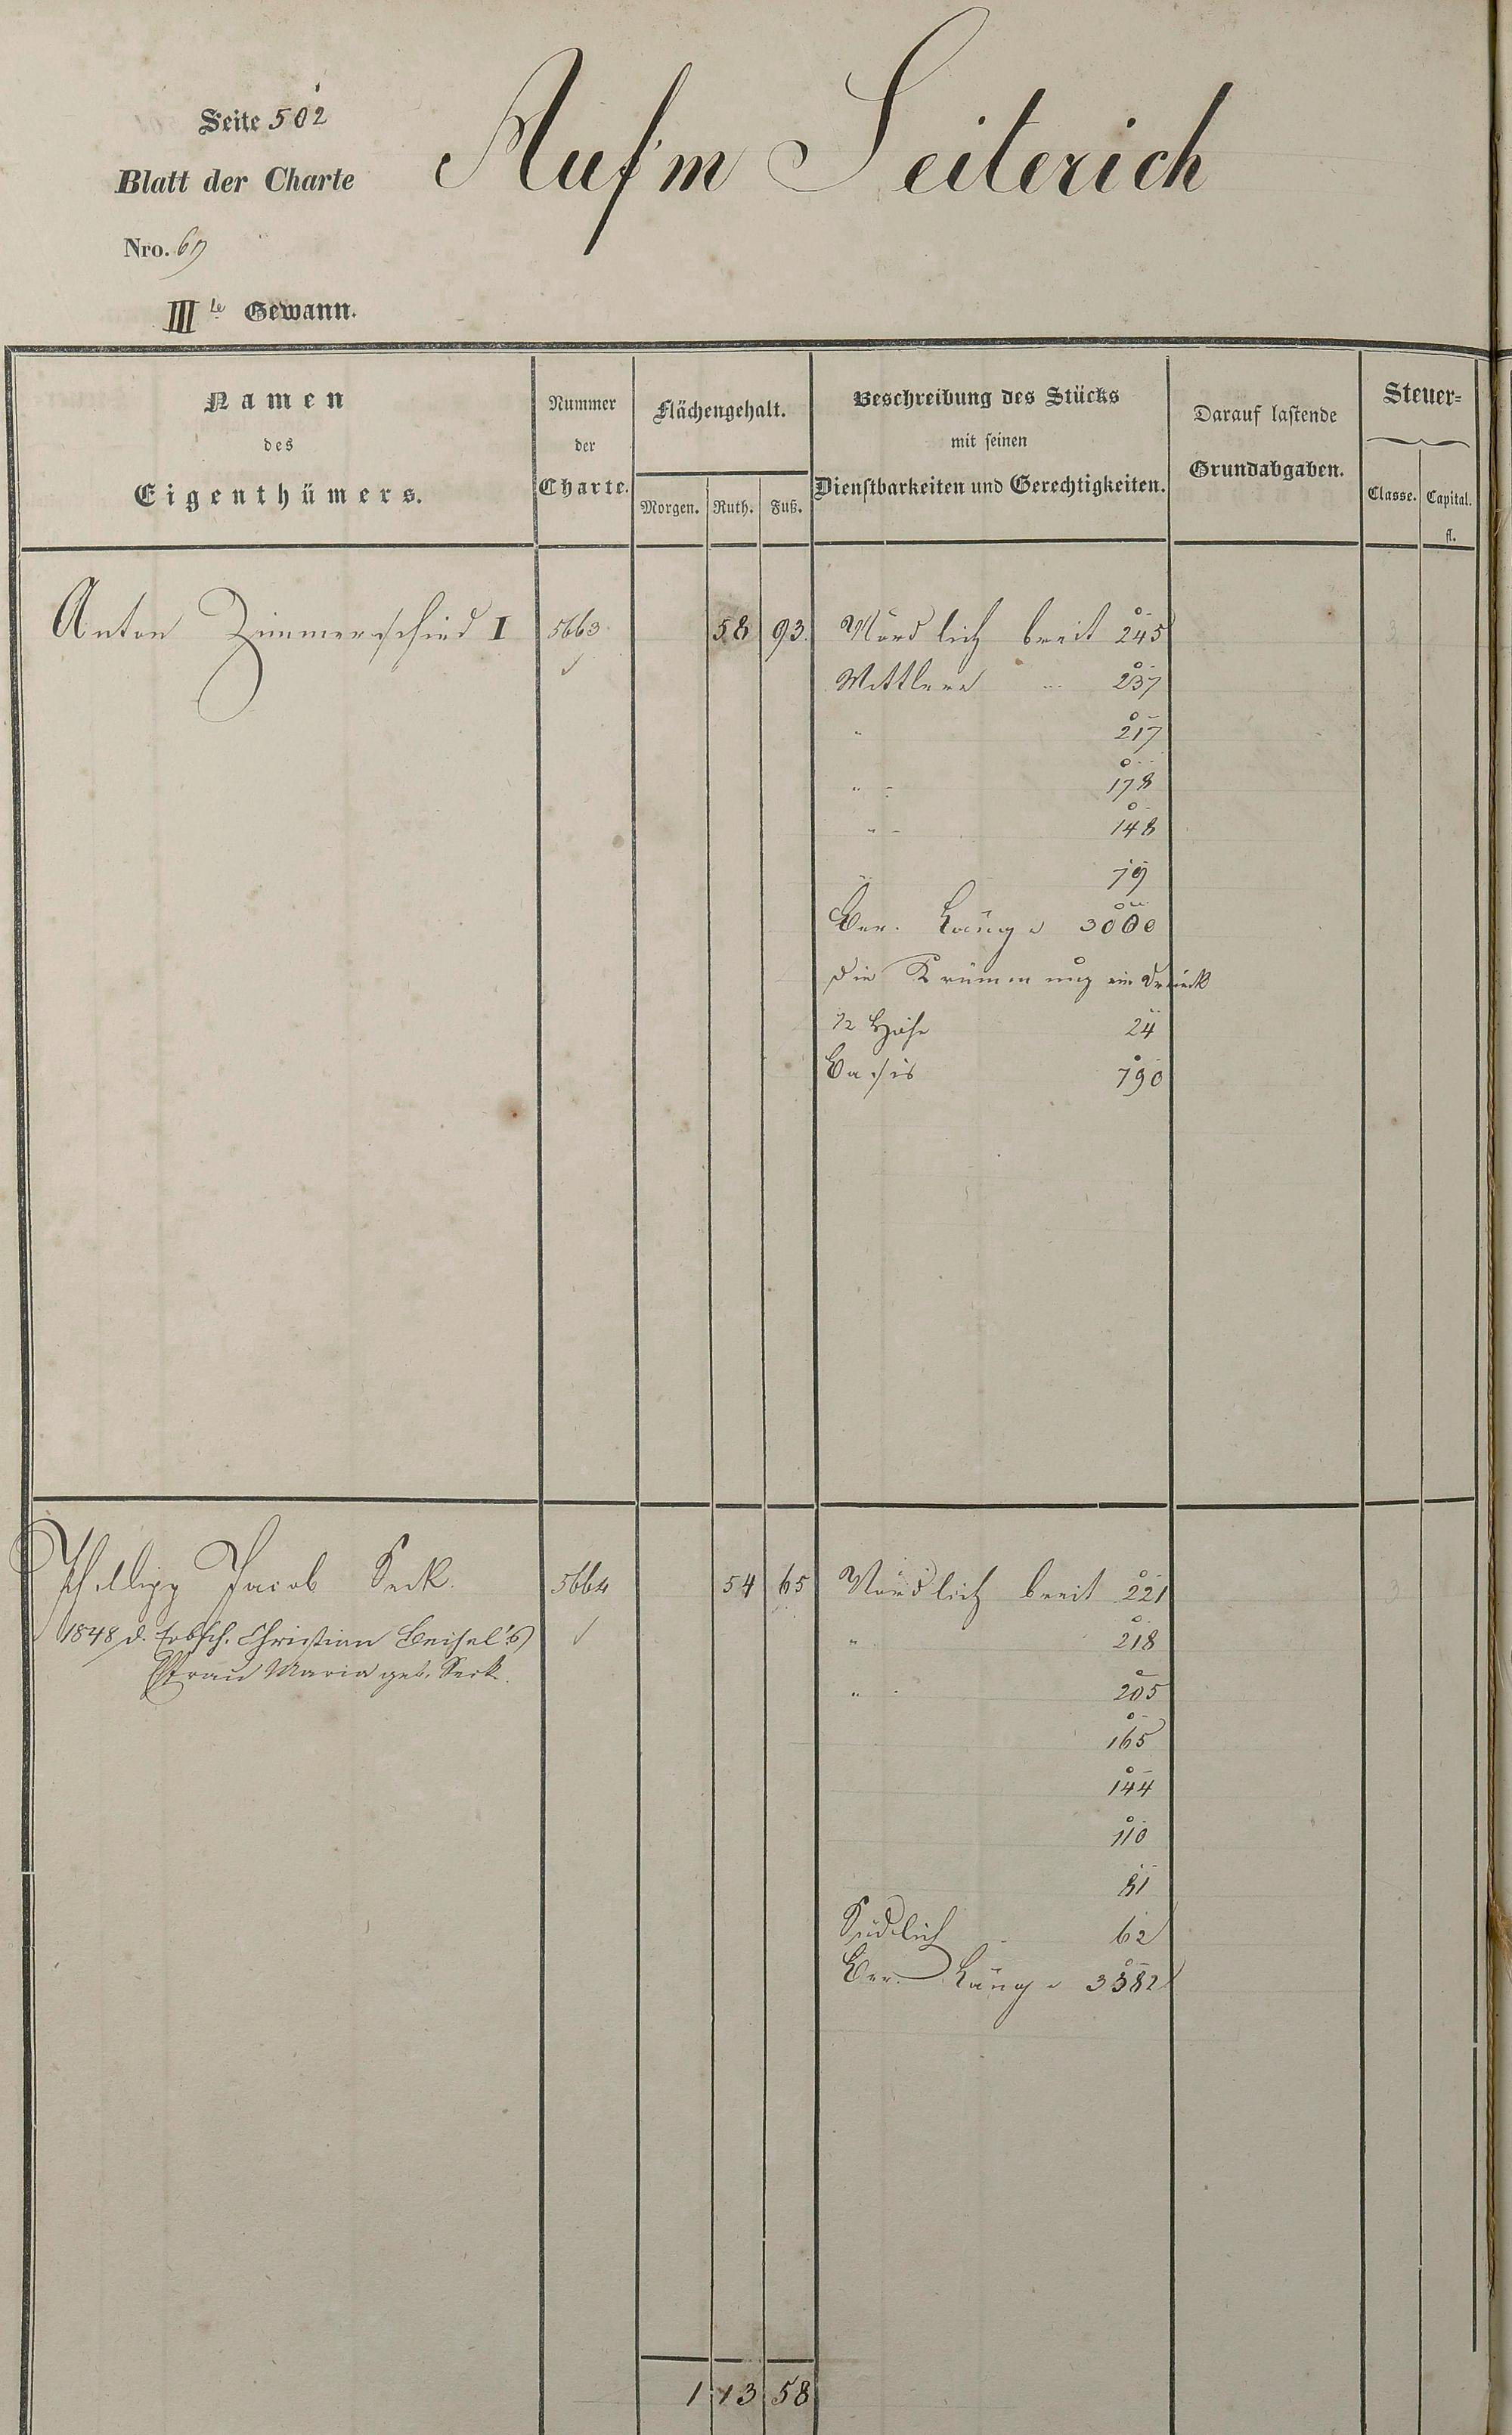 Seite 502
Auf'm Seiterich
Blatt der Charte
Nro. 69
IIIte Gewann.
Namen
des
Eigenthümers.
Nummer
der
Charte.
Flächengehalt.
Morgen. Ruth. Fuß.
Beschreibung des Stücks
mit seinen
Dienstbarkeiten und Gerechtigkeiten.
Darauf lastende
Grundabgaben.
Steuer-
Classe. Capital.
fl.
Anton Zimmerschied I 5663 58 93 Nördlich breit 245
Mittlere " 237
" 217
" " 178
" " 148
" 79
Ber. Länge 3000
die Krümmung ein Dreieck
1/2 Höhe 24
Basis 790
Philipp Jacob Seck. 5664 54 65 Nördlich breit 221 3
1848 d. Erbsch. Christian Beisel's " 218
Efrau Maria geb. Seck.
" 205
165
144
110
81
Südlich 62
Ber. Länge 3382
1 13 58